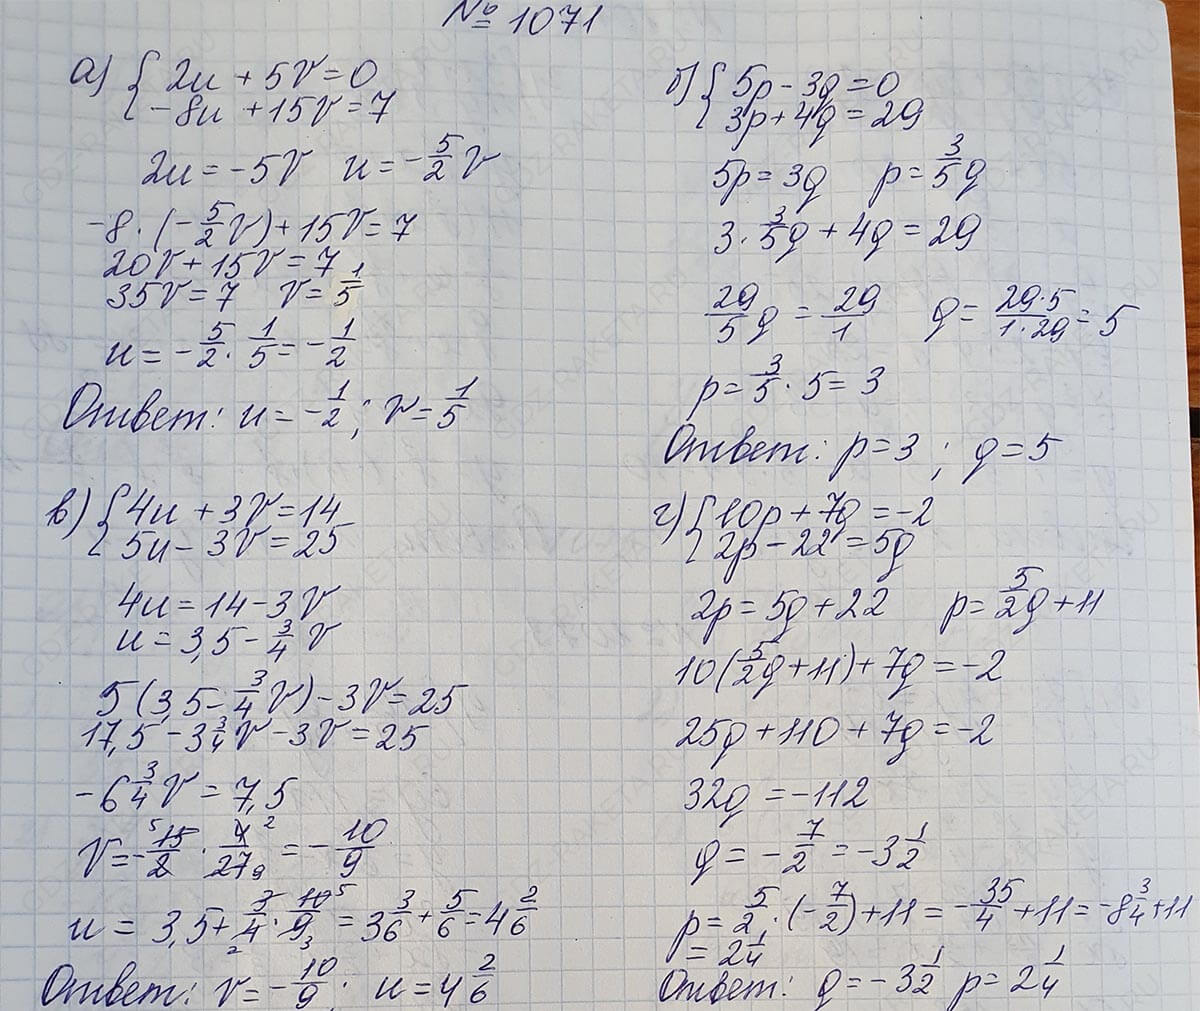 № 1071
а) { 2u + 5v = 0
-8u + 15v = 7
2u = -5v u = -5/2 v
-8 · (-5/2 v) + 15v = 7
20v + 15v = 7
35v = 7 v = 1/5
u = -5/2 · 1/5 = -1/2
Ответ: u = -1/2; v = 1/5
б) { 5p - 3q = 0
3p + 4q = 29
5p = 3q p = 3/5 q
3 · 3/5 q + 4q = 29
29/5 q = 29/1 q = 29·5/1·29 = 5
p = 3/5 · 5 = 3
Ответ: p = 3; q = 5
в) { 4u + 3v = 14
5u - 3v = 25
4u = 14 - 3v
u = 3,5 - 3/4 v
5(3,5 - 3/4 v) - 3v = 25
17,5 - 3 3/4 v - 3v = 25
-6 3/4 v = 7,5
v = - 15 5/2 · 4 2/27 9 = - 10/9
u = 3,5 + 3/4 2 · 10 5/9 3 = 3 3/6 + 5/6 = 4 2/6
Ответ: v = - 10/9; u = 4 2/6
г) { 10p + 7q = -2
2p - 22 = 5q
2p = 5q + 22 p = 5/2 q + 11
10(5/2 q + 11) + 7q = -2
25q + 110 + 7q = -2
32q = -112
q = -7/2 = -3 1/2
p = 5/2 · (-7/2) + 11 = -35/4 + 11 = -8 3/4 + 11
= 2 1/4
Ответ: q = -3 1/2 p = 2 1/4